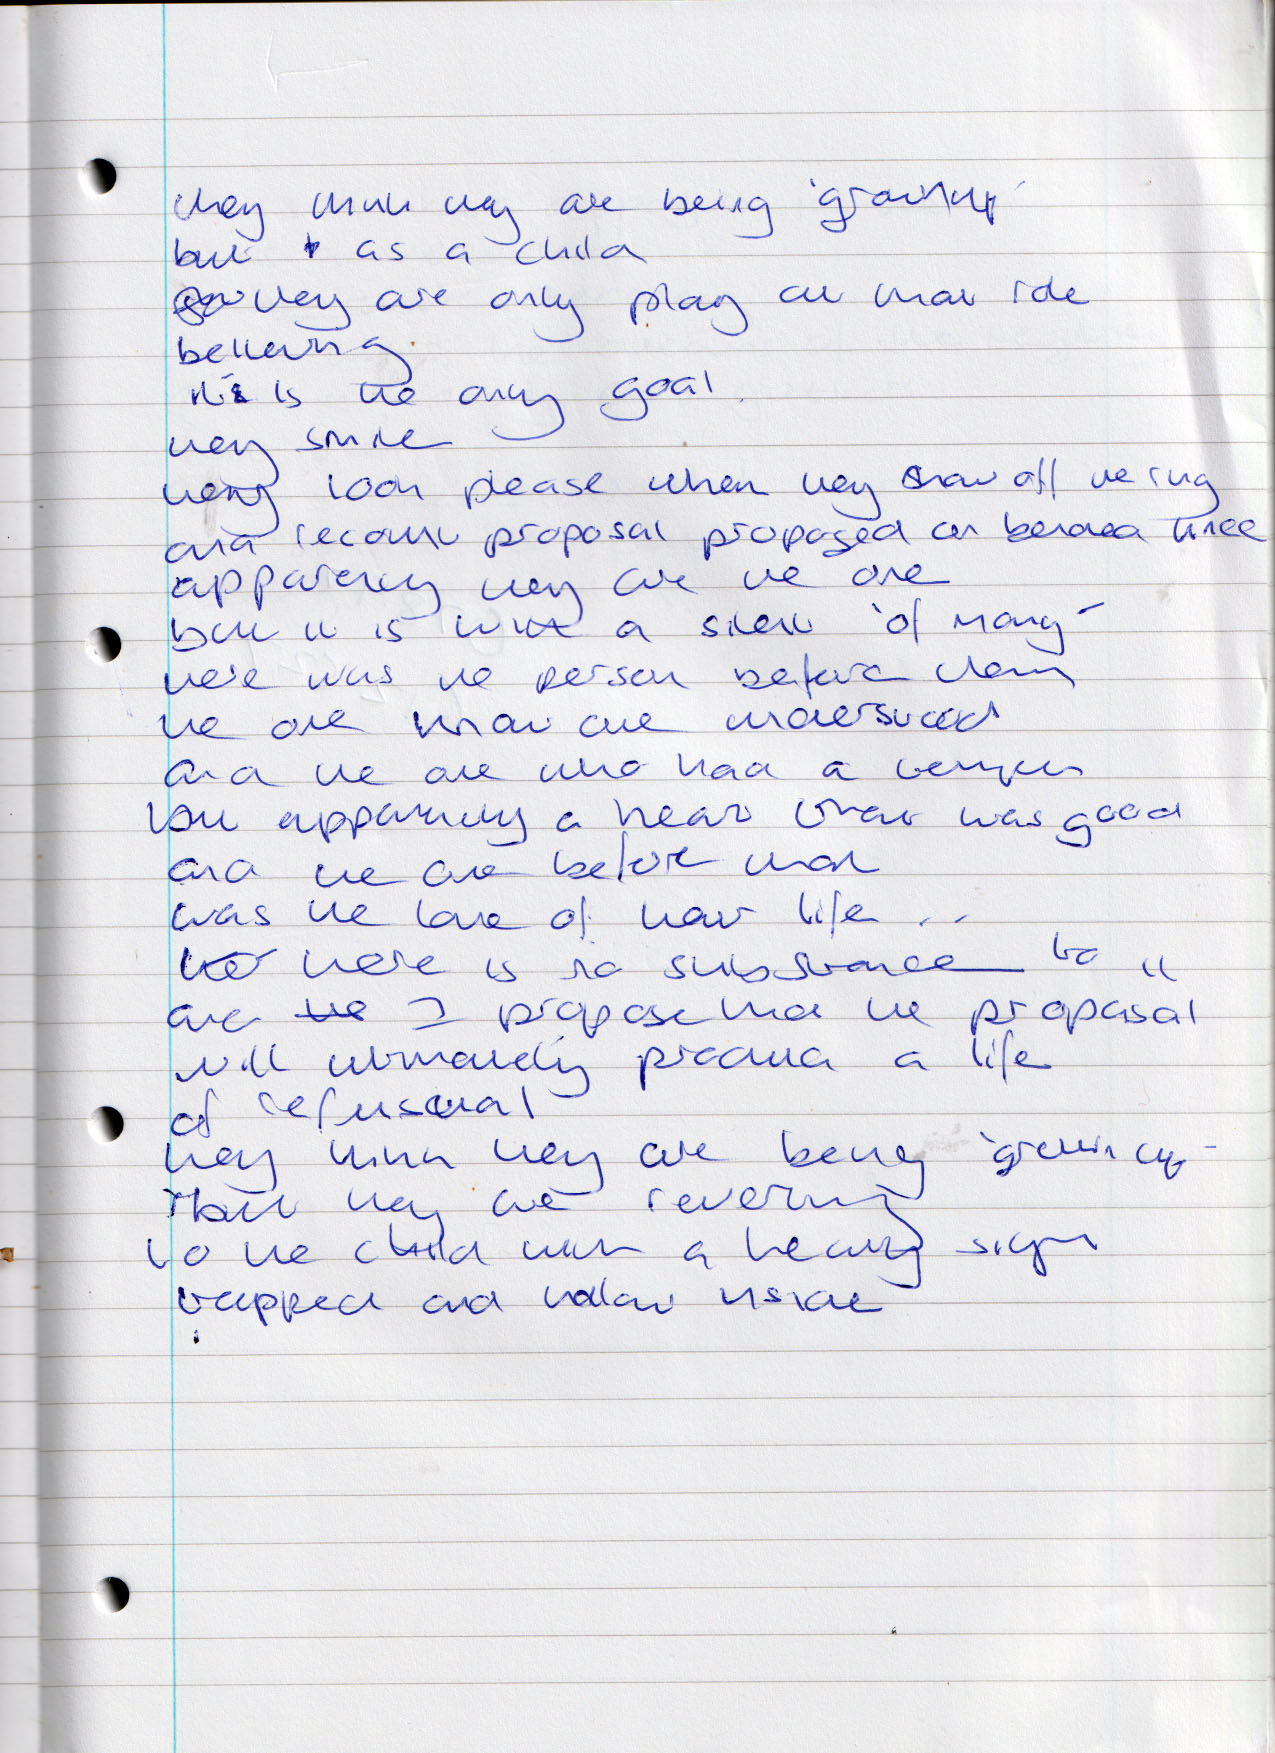 they think they are being 'grownup'
but as a child
they are only play out that role
believing
it is the only goal.
they smile
they look please when they show off the ring
and recount proposal proposed on bended knee
apparently they are the one
but it is with a silent 'of many'
there was the person before them
the one that one understood
and the one who had a temper
but apparently a heart that was good
and the one before that
was the love of their life ..
there is no substance to it
and I propose that the proposal
will ultimately produce a life
of refuseral
they think they are being 'grown up'
but they are reverting
to the child with a heavy sigh
trapped and hollow inside